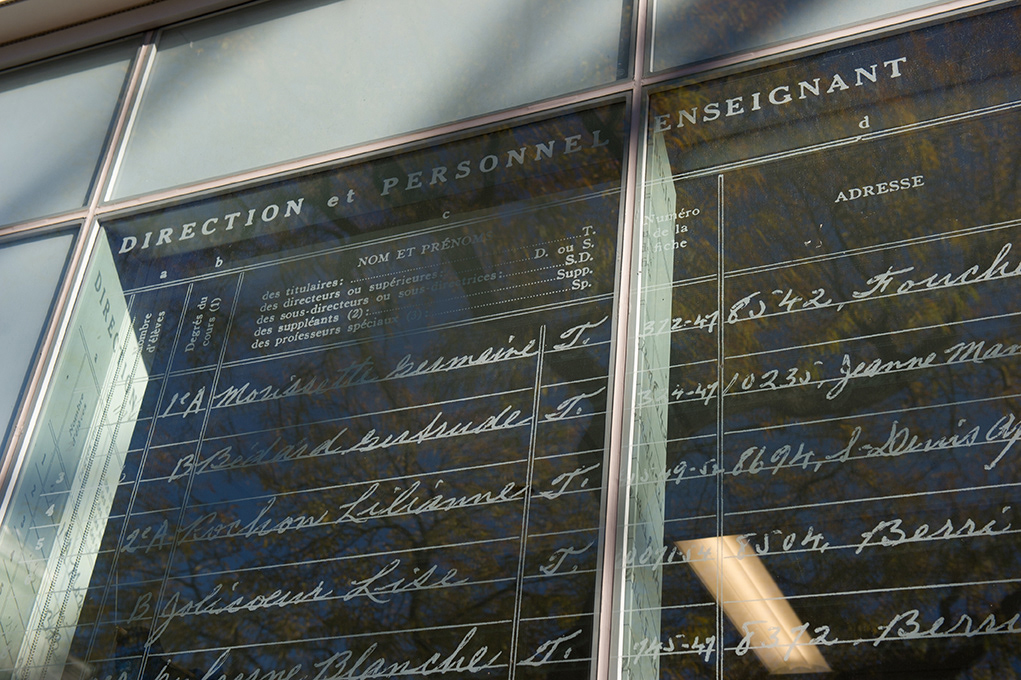 DIRECTION et PERSONNEL ENSEIGNANT
a b c d
Nombre d'élèves
Degrés du cours (1)
NOM ET PRÉNOM
des titulaires: T.
des directeurs ou supérieures: D. ou S.
des sous-directeurs ou sous-directrices: S.D.
des suppléants (2): Supp.
des professeurs spéciaux (1) Sp.
Numéro de la fiche
ADRESSE
1e A Morissette Germaine T. 372-47 8542, Fouche
B Bédard Gertrude T. 4-47 10235, Jeanne Man
2e A Rochon Lilianne T. 49-52 8694, S-Denis Ap
B Jolicoeur Lise T. 8504, Berri
Blanche T. 745-47 8372 Berri